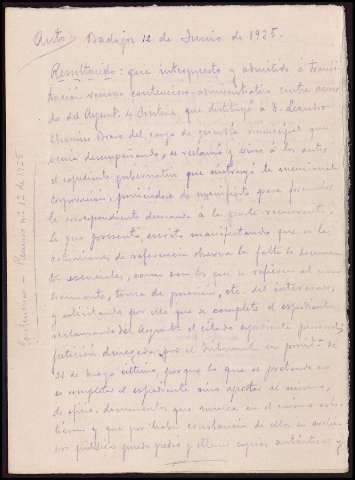 Auto Badajoz 12 de Junio de 1925.
Resultando: que interpuesto y admitido á trami-
tación recurso contencioso-administrativo contra acuer-
do del Ayuntº de que destituyó á D. Leandro
Bravo del cargo de municipal que
venía desempeñando, se reclamó y vino á los autos
el expediente gubernativo que entregó la mencionada
Corporación, poniéndose de manifiesto para formular
la correspondiente demanda á la parte recurrente,
la que presentó escrito manifestando que en las
actuaciones de referencia observa la falta de documen-
tos esenciales, como son los que se refieren al nom-
bramiento, toma de posesión, etc. del interesado,
y solicitando por ello que se complete el expediente,
reclamando del Ayuntº el citado expediente personal,
petición denegada por el Tribunal en provid.ª de
de mayo último, porque lo que se pretende no
es completar el expediente sino aportar al mismo,
de oficio, documentos que nunca en el mismo exis-
tieron y que por haber constancia de ellos en archi-
vos públicos puede pedir y obtener copias auténticas y
Contencioso - Recurso nº 12 de 1925